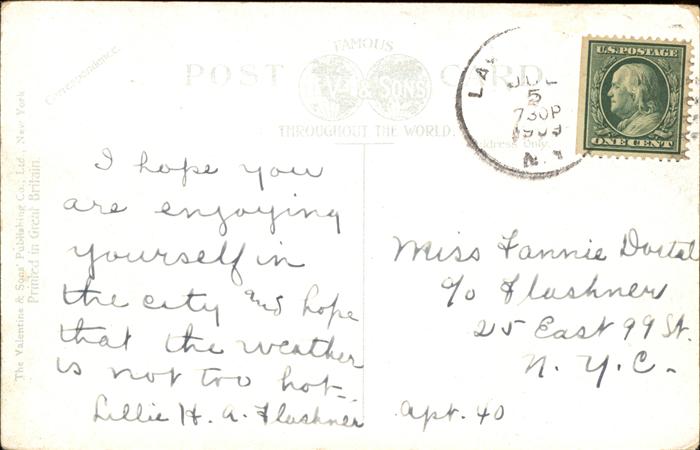 Correspondence.
FAMOUS
POST CARD
& SONS
THROUGHOUT THE WORLD.
Address Only.
The Valentine & Sons' Publishing Co., Ltd., New York
Printed in Great Britain.
JUL
5
730P
1909
N.Y.
U.S. POSTAGE
ONE CENT
I hope you
are enjoying
yourself in
the city and hope
that the weather
is not too hot.
Lillie H. A. Flushner
Miss Fannie Dostal
c/o Flushner
25 East 99 St.
N. Y. C.
Apt. 40